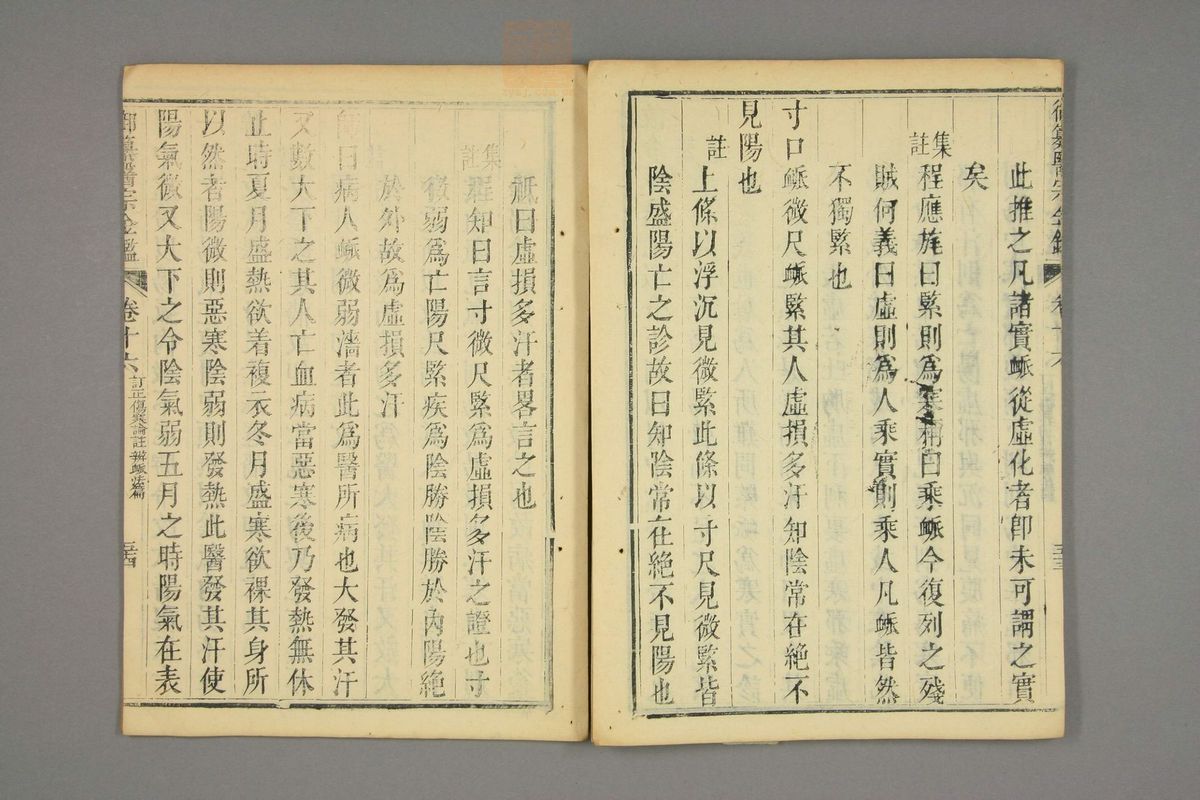 御纂醫宗金鑑 卷十六 三三
此推之凡諸實䘑從虛化者卽未可謂之實
矣
集註 程應旄曰緊則爲寒痛曰乘䘑今復列之殘
賊何義曰虛則爲人乘實則乘人凡䘑皆然
不獨緊也
寸口䘑微尺䘑緊其人虛損多汗知陰常在絶不
見陽也
註 上條以浮沉見微緊此條以寸尺見微緊皆
陰盛陽亡之診故曰知陰常在絶不見陽也
祇曰虛損多汗者畧言之也
集註 程知曰言寸微尺緊爲虛損多汗之證也寸
微弱爲亡陽尺緊疾爲陰勝陰勝於內陽絶
於外故爲虛損多汗
師曰病人䘑微弱濇者此爲醫所病也大發其汗
又數大下之其人亡血病當惡寒後乃發熱無休
止時夏月盛熱欲着複衣冬月盛寒欲裸其身所
以然者陽微則惡寒陰弱則發熱此醫發其汗使
陽氣微又大下之令陰氣弱五月之時陽氣在表
御纂醫宗金鑑 卷十六 訂正傷寒論註辨䘑法篇 三四